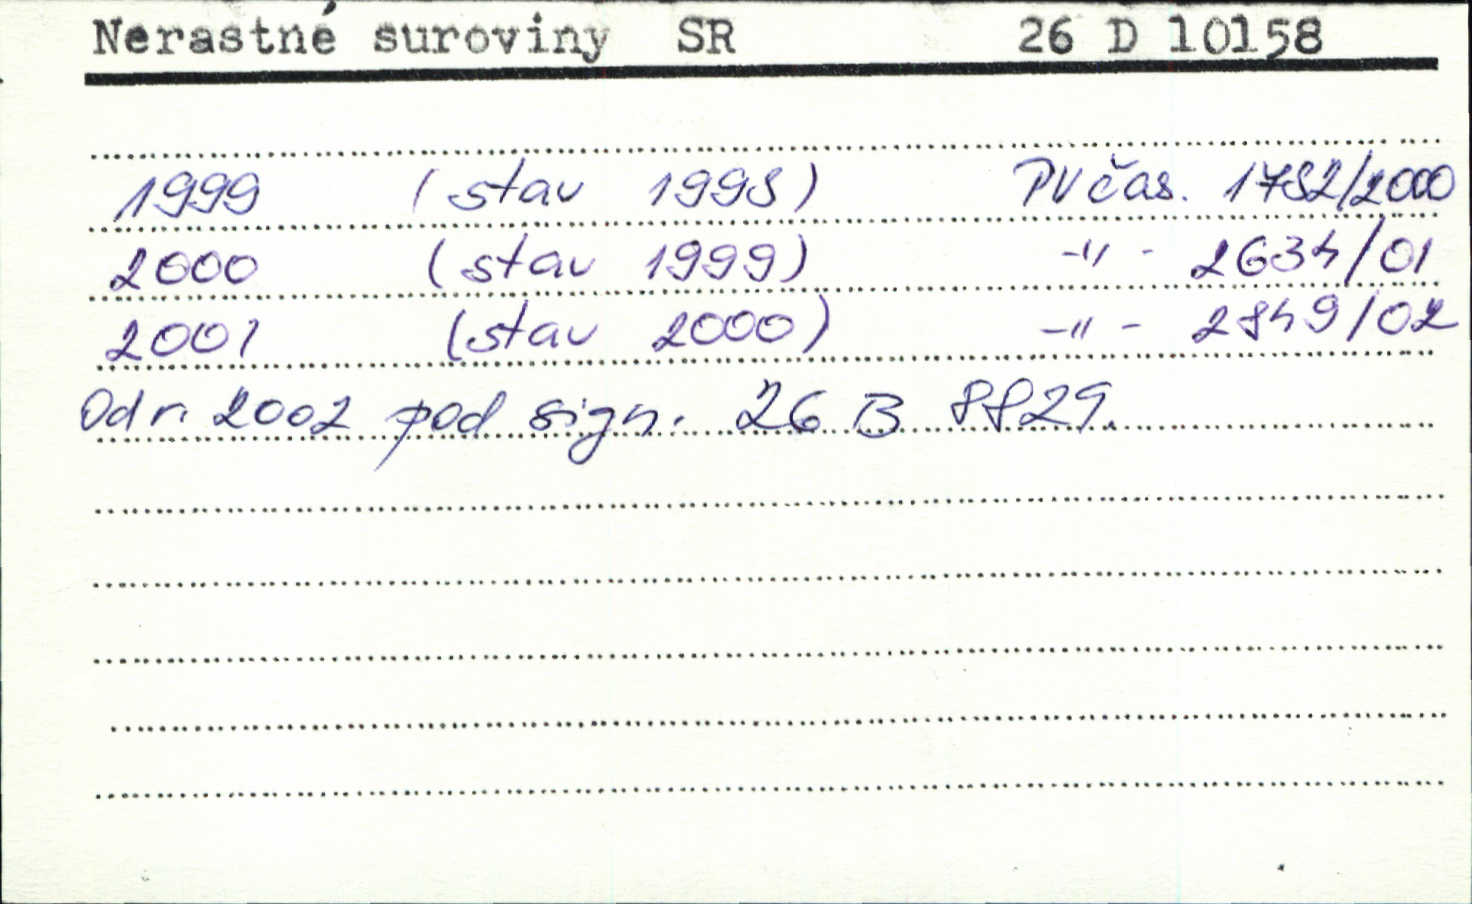 Nerastné suroviny SR 26 D 10158
1999 (stav 1998) PV čas. 1782/2000
2000 (stav 1999) -"- 2634/01
2001 (stav 2000) -"- 2849/02
Od r. 2002 pod sign. 26 B 8829.